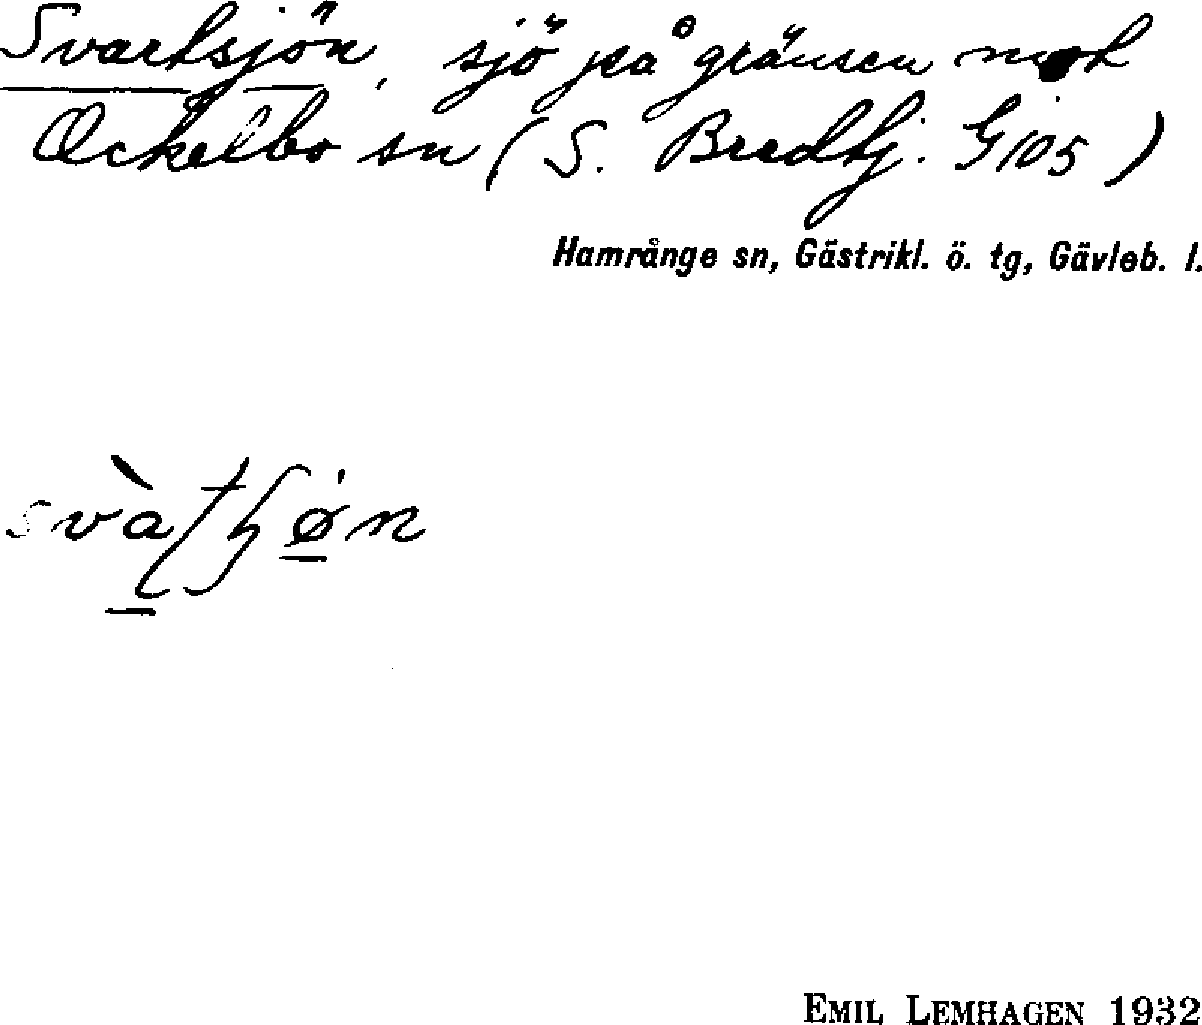 Svartsjön, sjö på gränsen mot
Ockelbo sn (S. Bredtj. G 105)
Hamrånge sn, Gästrikl. ö. tg, Gävleb. l.
EMIL LEMHAGEN 1932